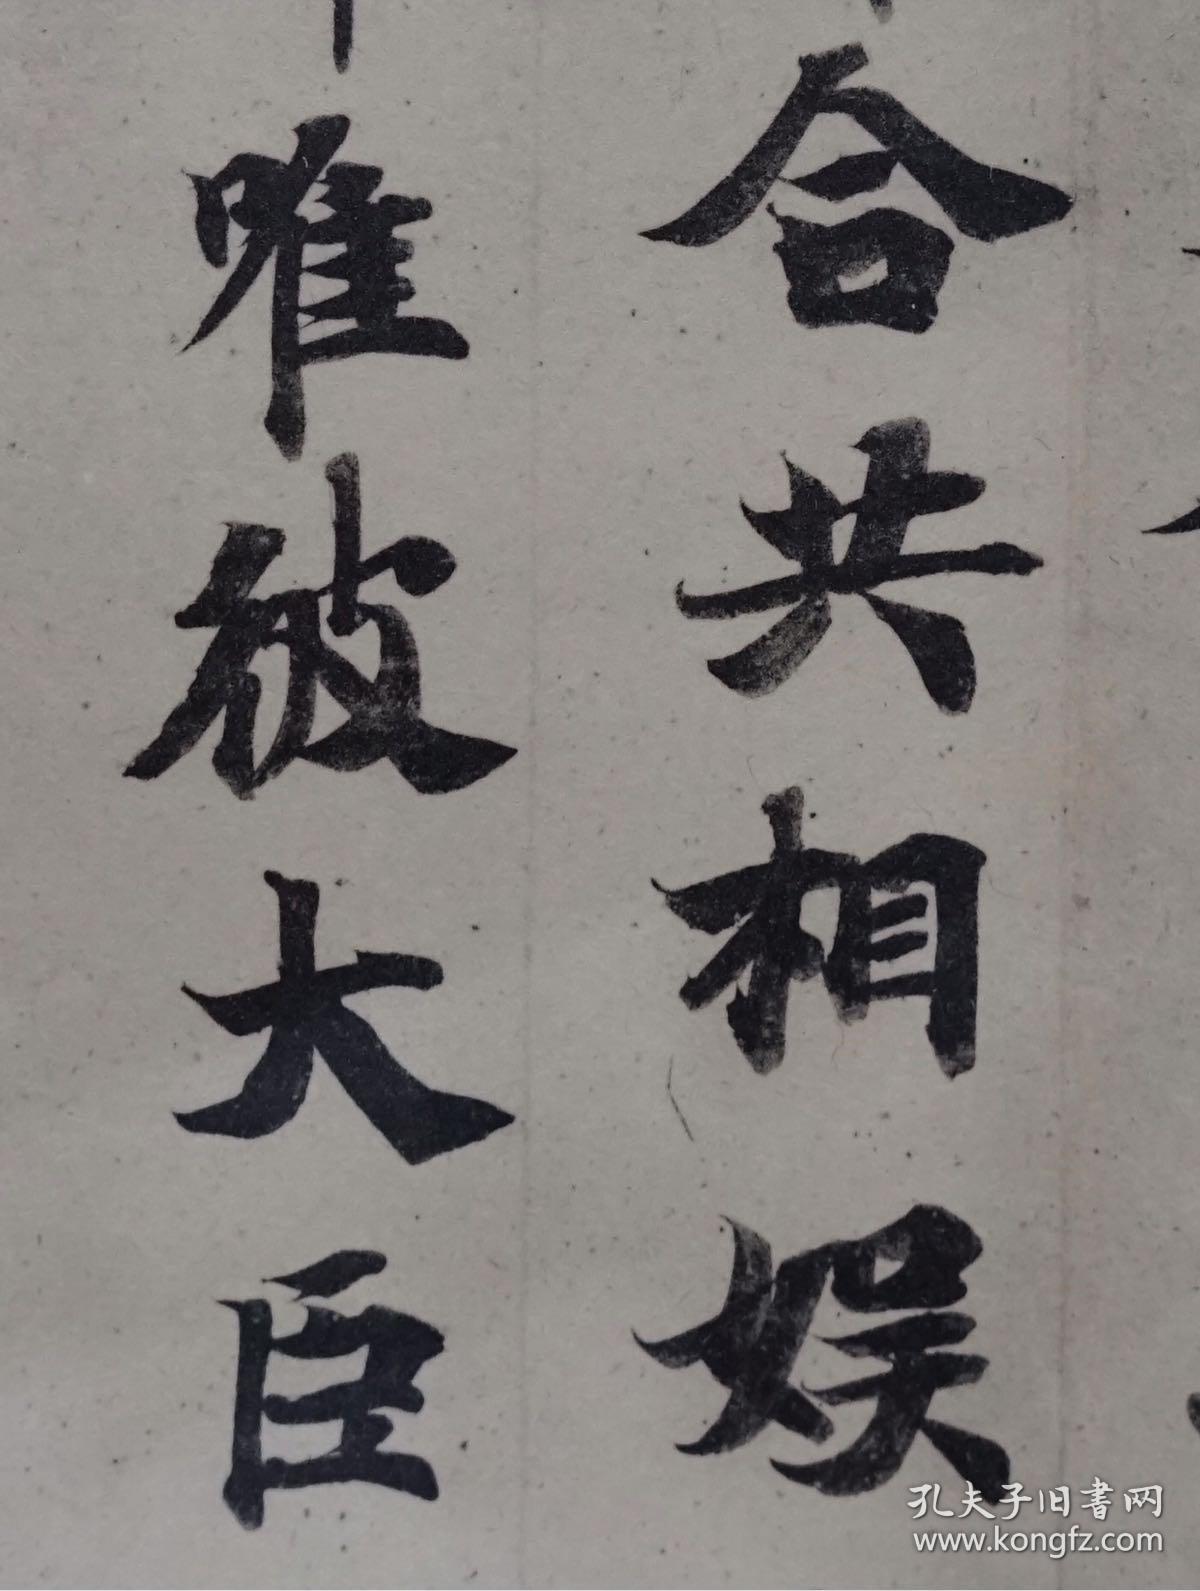 合共相娱
唯彼大臣
孔夫子旧書网
www.kongfz.com